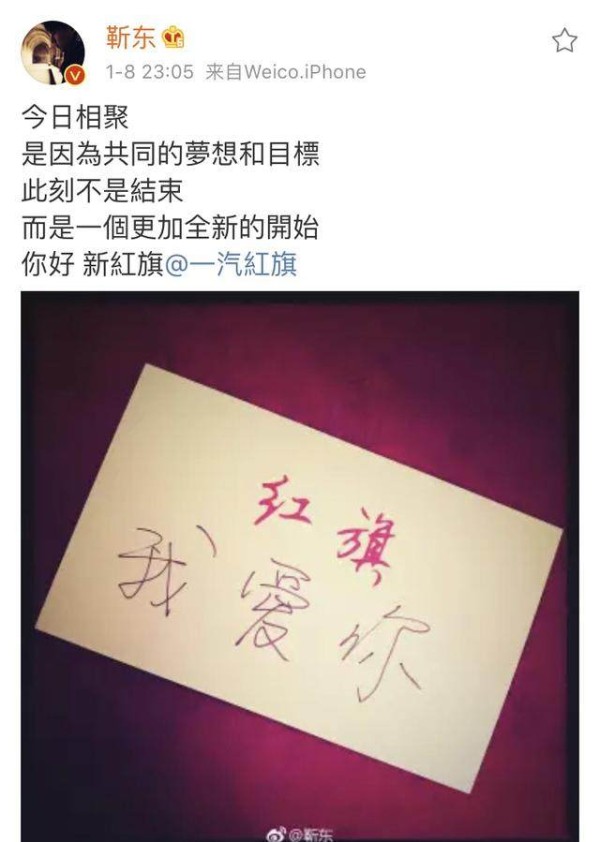 靳东
1-8 23:05 来自Weico.iPhone
今日相聚
是因為共同的夢想和目標
此刻不是結束
而是一個更加全新的開始
你好 新紅旗@一汽紅旗
红旗
我愛你
@靳东